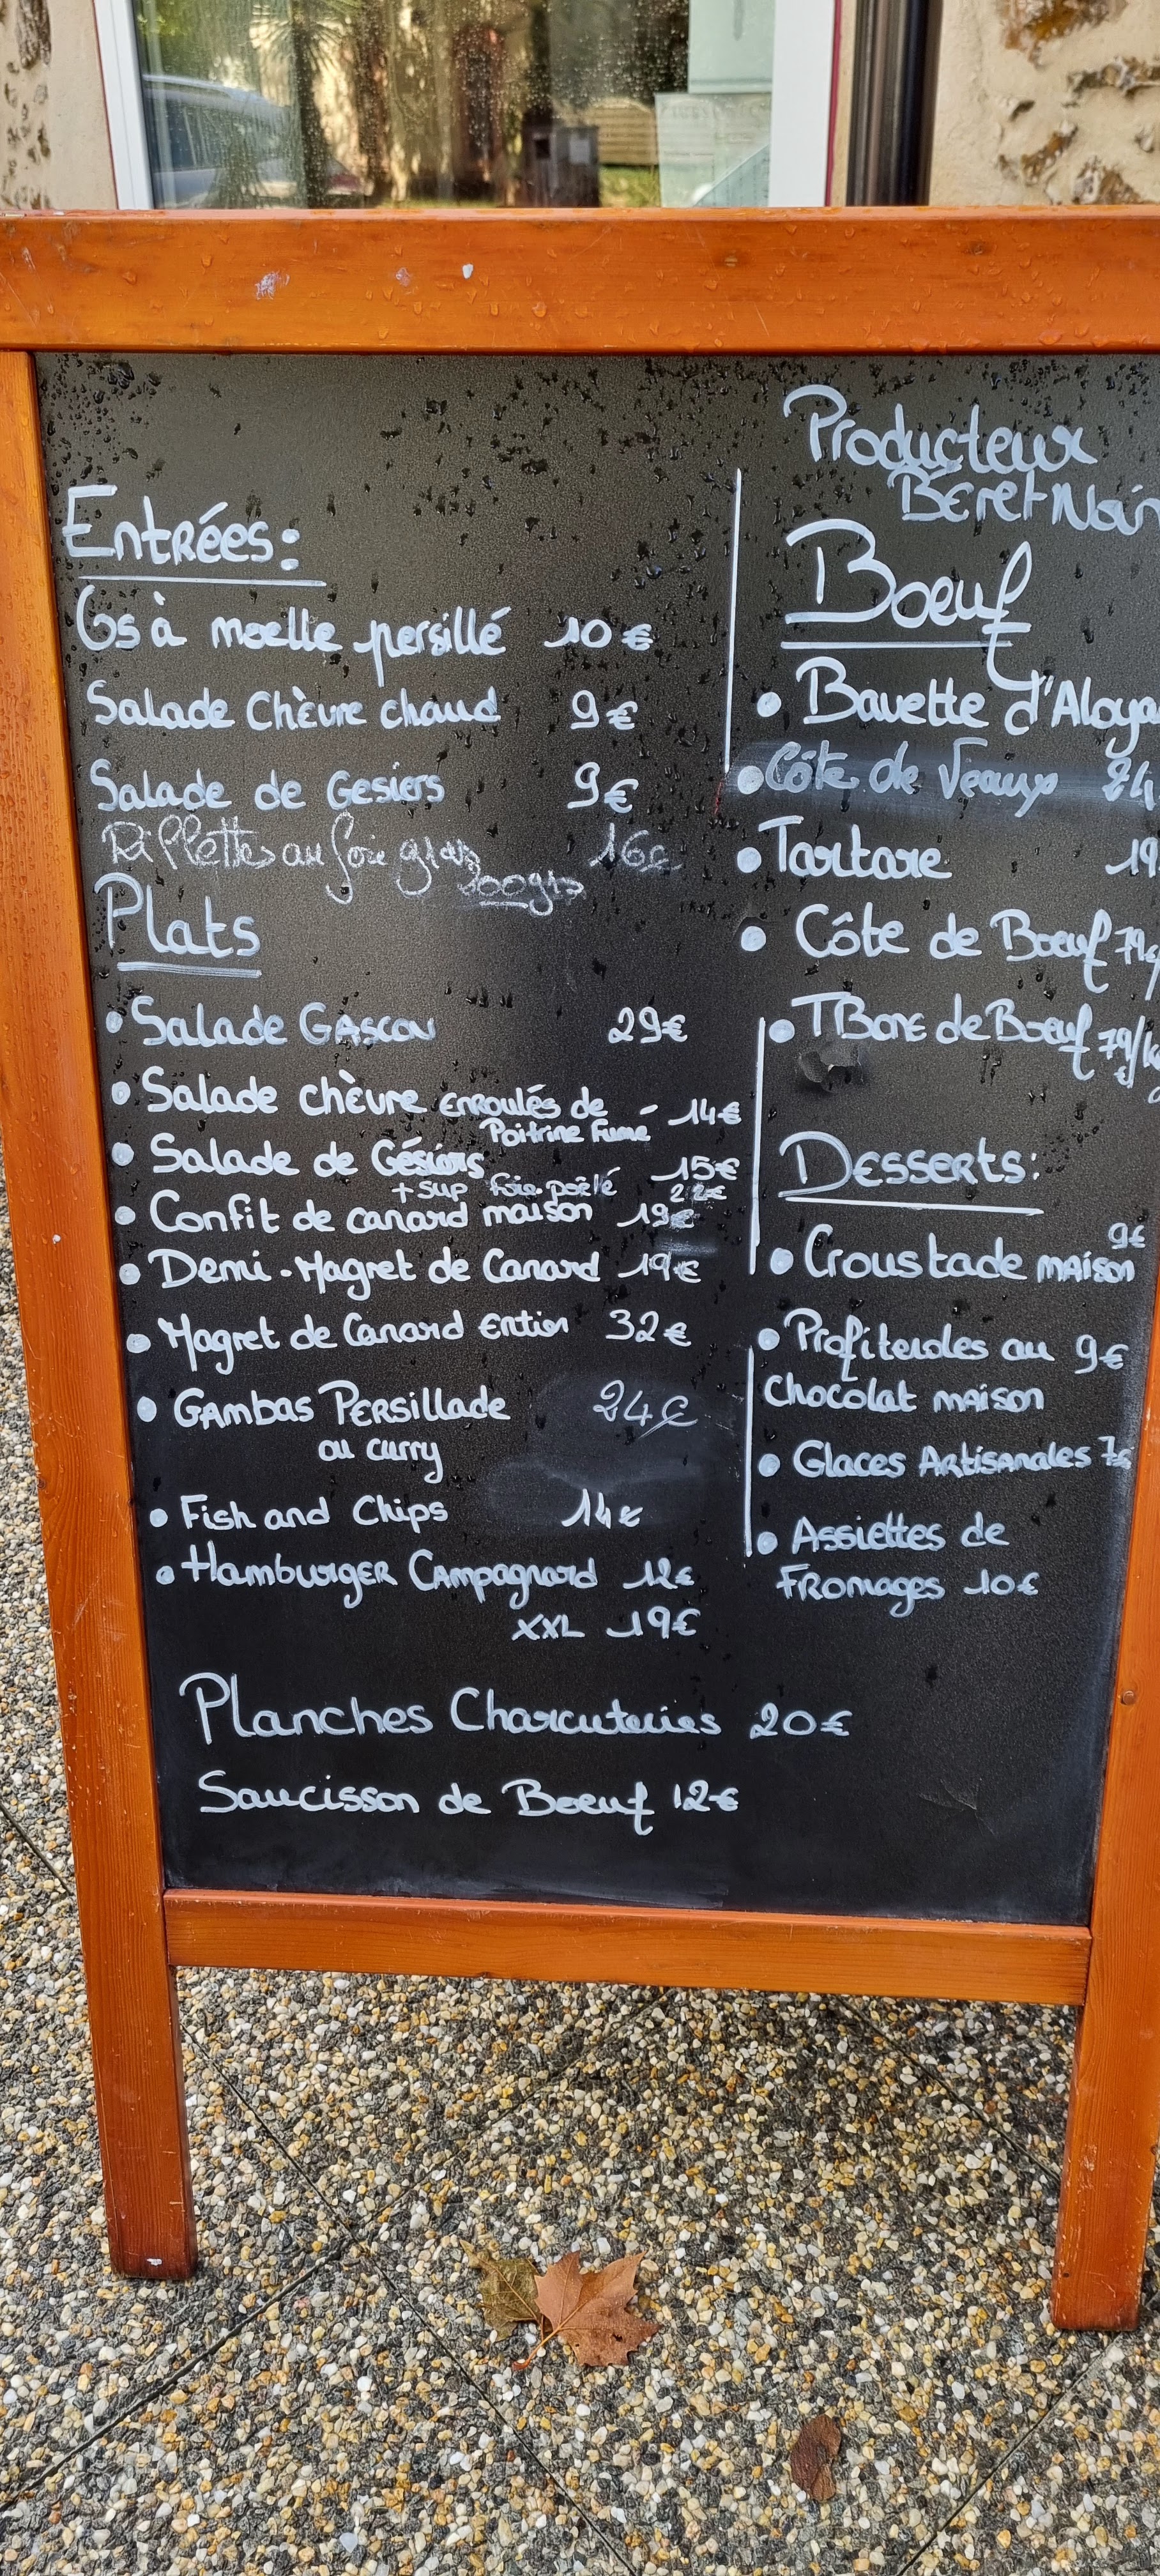 Entrées:
Os à moelle persillé 10€
Salade Chèvre chaud 9€
Salade de Gesiers 9€
Rillettes au foie gras 16€
300grs
Plats
• Salade GASCON 29€
• Salade chèvre enroulés de - 14€
Poitrine Fumé
• Salade de Gésiers 15€
+ sup foie poêlé 22€
• Confit de canard maison 19€
• Demi-Magret de Canard 19€
• Magret de Canard Entier 32€
• GAmbas PERSillade 24€
ou curry
• Fish and Chips 14€
• HamburgER CAmpagnard 12€
XXL 19€
Planches Charcuteries 20€
Saucisson de Boeuf 12€
Producteur
BéretNoir
Boeuf
• Bavette d'Aloya
• Côte de Veau 24
• Tartare 19
• Côte de Boeuf 79€/
• TBone de Boeuf 79/k
€
Desserts:
9€
• Croustade maison
• Profiteroles au 9€
Chocolat maison
• Glaces Artisanales 7€
• Assiettes de
Fromages 10€